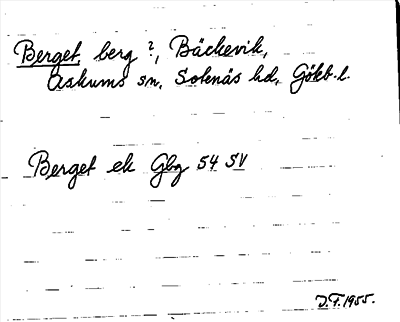 Berget, berg ?, Bäckevik,
Askums sn, Sotenäs hd, Götb. l.
Berget ek Gbg 54 SV
D.F. 1955.